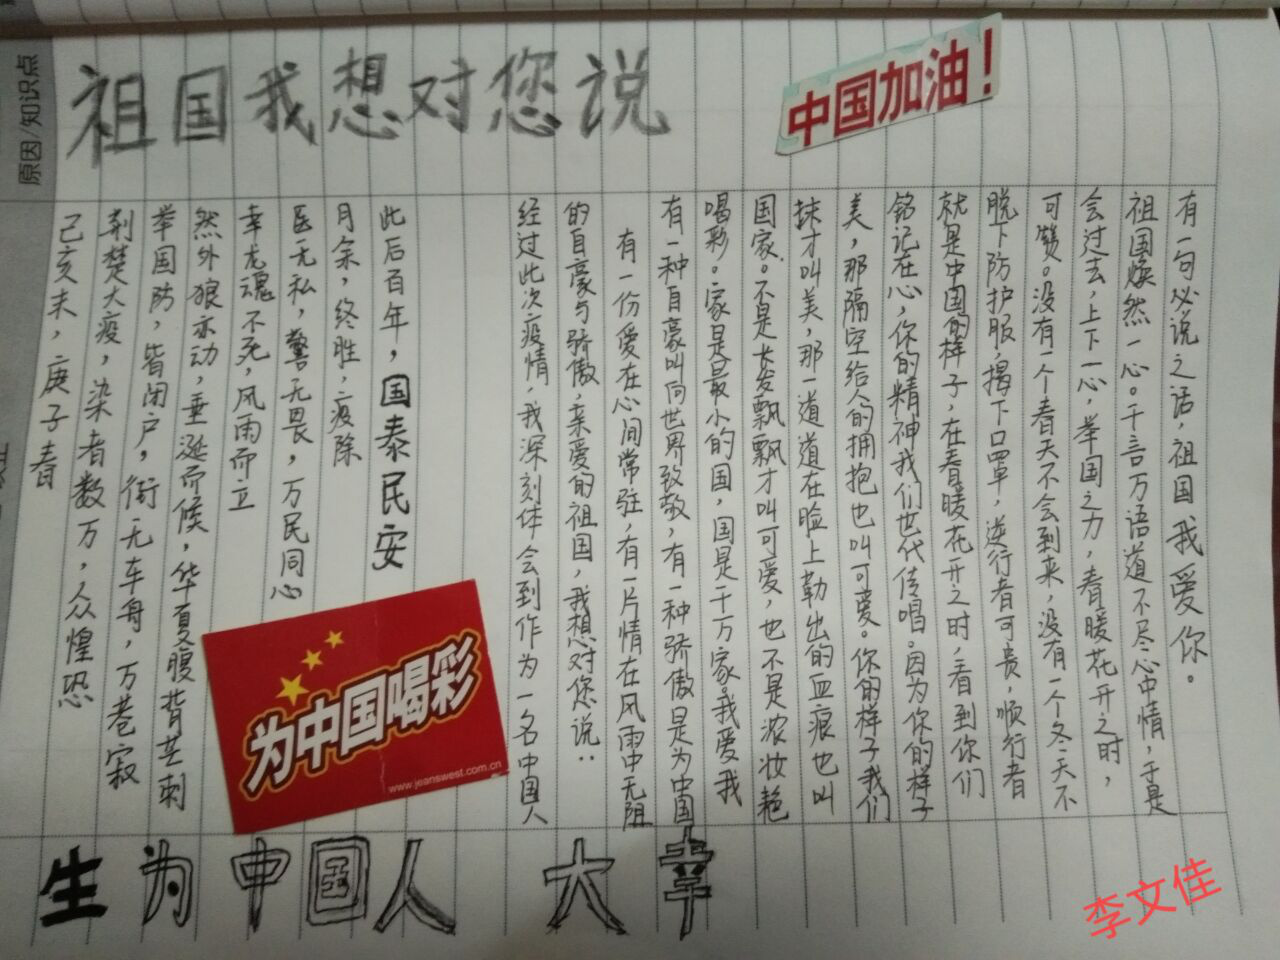 原因/知识点
祖国我想对您说
中国加油！
己亥末，庚子春
荆楚大疫，染者数万，众惶恐
举国防，皆闭户，街无车舟，万巷寂
然外狼亦动，垂涎而候，华夏腹背芒刺
幸龙魂不死，风雨而立
医无私，警无畏，万民同心
月余，终胜，疫除
此后百年，国泰民安
经过此次疫情，我深刻体会到作为一名中国人
的自豪与骄傲，亲爱的祖国，我想对您说：
有一份爱在心间常驻，有一片情在风雨中无阻
有一种自豪叫向世界致敬，有一种骄傲是为中国
喝彩。家是最小的国，国是千万家。我爱我
国家。不是长发飘飘才叫可爱，也不是浓妆艳
抹才叫美，那一道道在脸上勒出的血痕也叫
美，那隔空给人的拥抱也叫可爱。你的样子我们
铭记在心，你的精神我们世代传唱。因为你的样子
就是中国的样子，在春暖花开之时，看到你们
脱下防护服，揭下口罩，逆行者可贵，顺行者
可赞。没有一个春天不会到来，没有一个冬天不
会过去，上下一心，举国之力，春暖花开之时，
祖国焕然一心。千言万语道不尽心中情，于是
有一句必说之话，祖国我爱你。
为中国喝彩
www.jeanswest.com.cn
生为中国人 大幸
李文佳